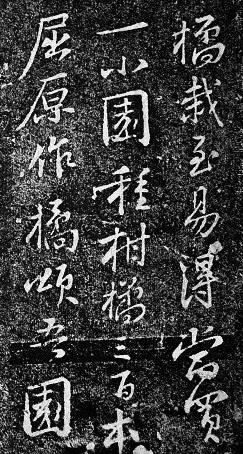 橘栽至易得當買
一小園種柑橘三百本
屈原作橘頌吾園